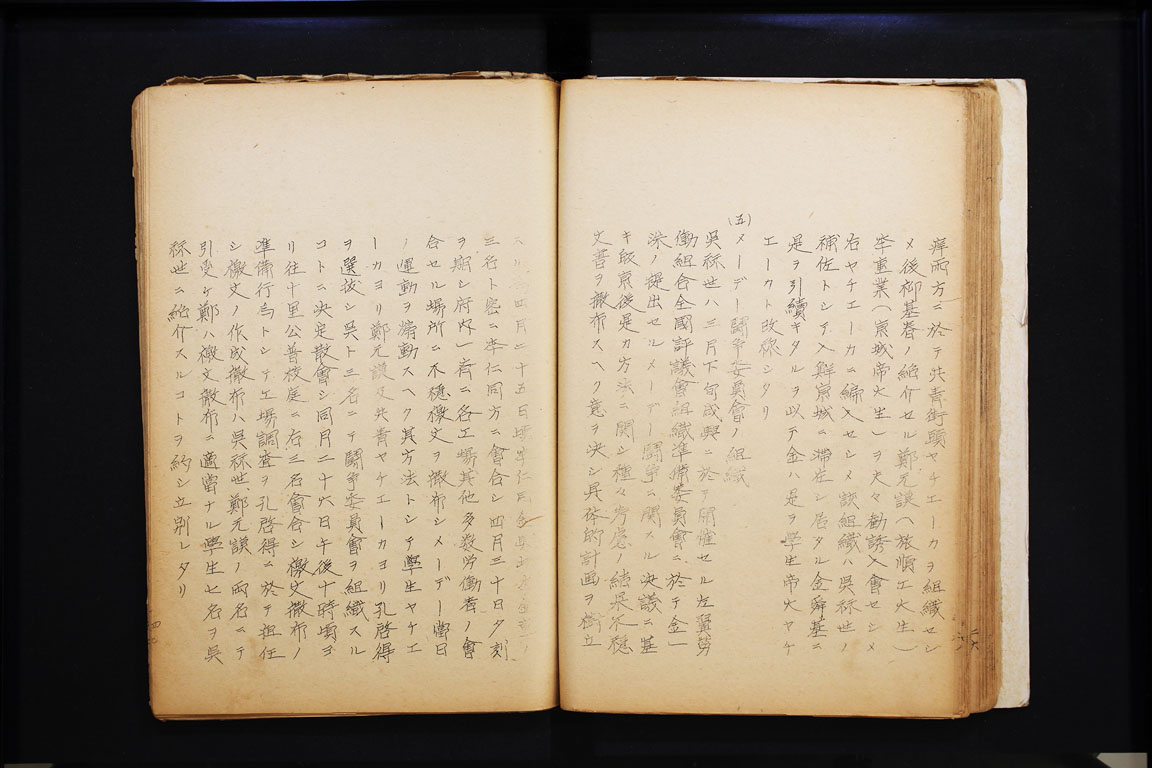 痒両方ニ於テ共青街頭ヤチエーカヲ組織セシ
メ後柳基春ノ紹介セル鄭元謨(旅順工大生)
李重業(京城帝大生)ヲ夫々勧誘入會セシメ
右ヤチエーカニ編入セシメ該組織ハ呉祢世ノ
補佐トシテ入鮮京城ニ滞在シ居タル金舜基ニ
是ヲ引續キタルヲ以テ金ハ是ヲ學生帝大ヤチ
エーカト改称シタリ
(五)メーデー闘争委員會ノ組織
呉祢世ハ三月下旬咸興ニ於テ開催セル左翼労
働組合全國評議會組織準備委員會ニ於テ金一
洙ノ提出セルメーデー闘争ニ関スル決議ニ基
キ敀京後是カ方法ニ関シ種々考慮ノ結果不穏
文書ヲ撒布スヘク意ヲ決シ具体的計画ヲ樹立
四月二十五日
三行ト密ニ李仁同方ニ會合シ四月三十日夕刻
ヲ期シ府内一斉ニ各工場其他多数労働者ノ會
合セル場所ニ不穏檄文ヲ撒布シメーデー當日
ノ運動ヲ煽動スヘク其方法トシテ學生ヤチエ
ーカヨリ鄭元謨及共青ヤチエーカヨリ孔啓得
ヲ選拔シ呉ト三名ニテ闘争委員會ヲ組織スル
コトニ決定散會シ同月二十六日午後十時頃ヨ
リ往十里公普校庭ニ右三名會合シ檄文撒布ノ
準備行為トシテ工場調査ヲ孔啓得ニ於テ担任
シ檄文ノ作成撒布ハ呉祢世、鄭元謨ノ両名ニテ
引受ケ鄭ハ檄文撒布ニ適當ナル學生七名ヲ呉
祢世ニ紹介スルコトヲ約シ立別レタリ